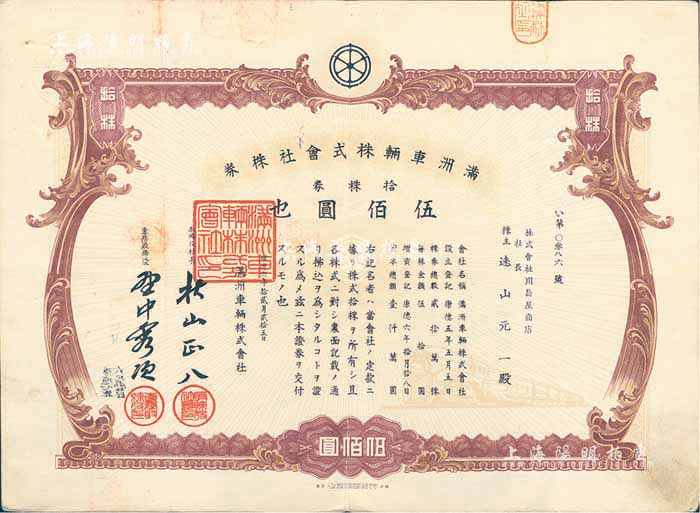 上海陽明拍賣
拾株
拾株
滿洲車輛株式會社株券
拾株券
伍佰圓也
い第〇参八六號
株式會社川島屋商店
社長
株主 遠山元一殿
會社名稱 滿洲車輛株式會社
設立登記 康德五年五月五日
株券總數 貳拾萬株
每株金額 伍拾圓
增資登記 康德六年拾月拾八日
資本總額 壹仟萬圓
右記名者ハ當會社ノ定款ニ
據リ株式拾株ヲ所有シ且
各株式ニ對シ裏面記載ノ通
リ拂込ヲ爲シタルコトヲ證
スル爲メ玆ニ本證券ヲ交付
スルモノ也
拾貳月貳拾五日
滿洲車輛株式會社
滿洲車輛株式會社印
秋山正八
野中秀次
伍佰圓
上海陽明拍賣